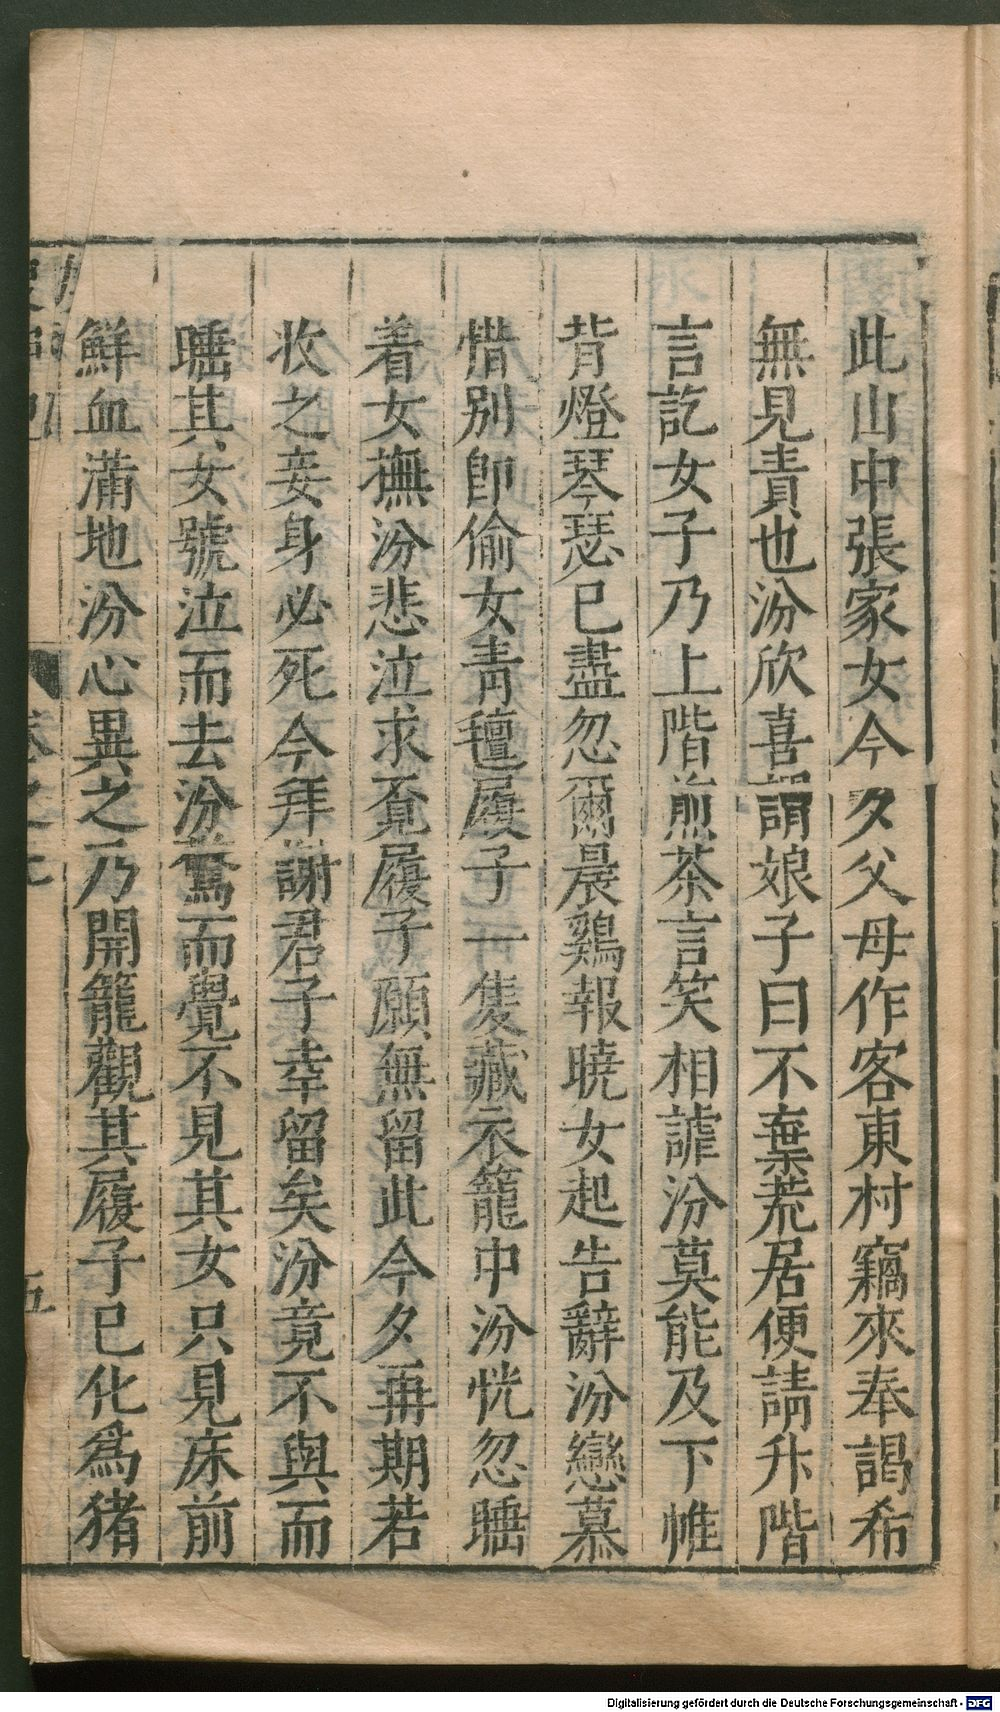 此山中張家女今夕父母作客東村竊來奉謁希
無見責也汾欣喜謂娘子曰不棄荒居便請升階
言訖女子乃上階煎茶言笑相謔汾莫能及下帷
背燈琴瑟已盡忽爾晨鷄報曉女起告辭汾戀慕
惜別即偷女青氊履子一隻藏衣籠中汾恍忽睡
着女撫汾悲泣求覔履子願無留此今夕再期若
收之妾身必死今拜謝君子幸留矣汾竟不與而
睡其女號泣而去汾驚而覺不見其女只見床前
鮮血蒲地汾心異之乃開籠觀其履子已化爲猪
卷之
五
Digitalisierung gefördert durch die Deutsche Forschungsgemeinschaft - DFG